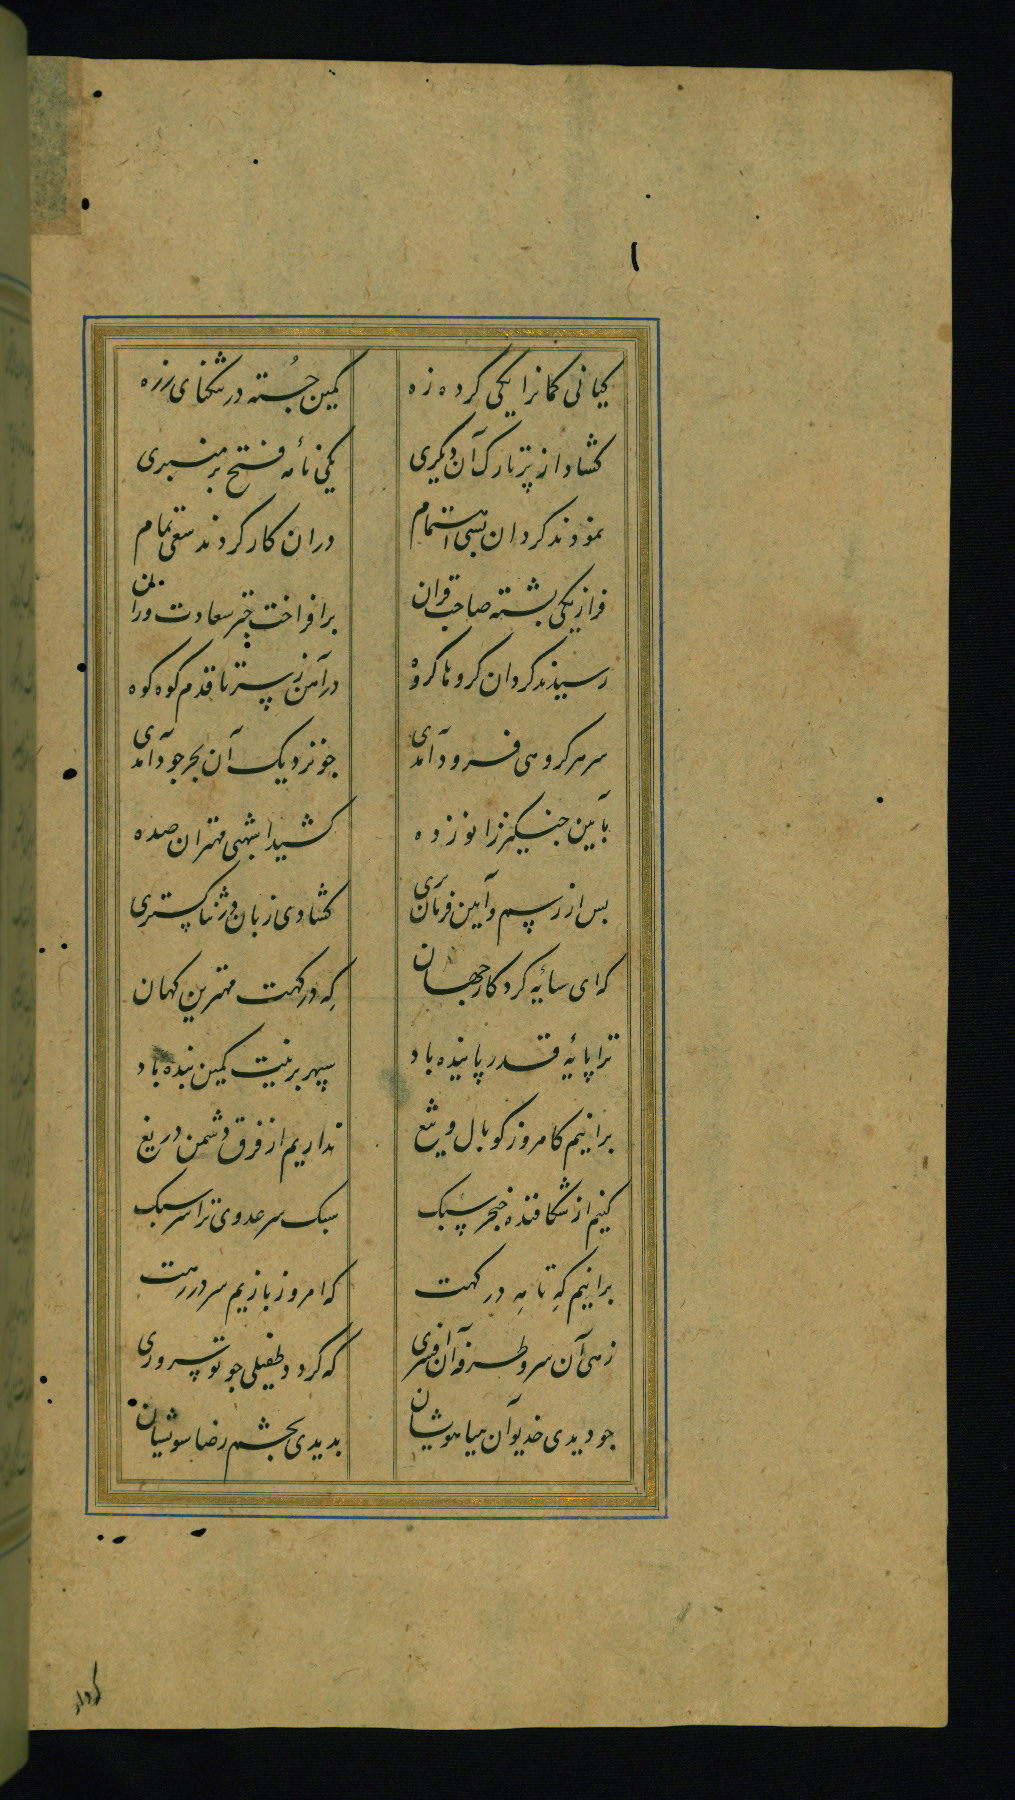 ۱
کیانی کمانرا یکی کرده زه کمین جُسته در تنکنای زره
کشاد از بر تارک آن دیکری یکی نامهٔ فتح بر منبری
نمودند کردان بسی اهتمام دران کار کردند سعی تمام
فراز یکی پشته صاحب قران برافراخت چتر سعادت وران
رسیدند کردان کروها کروه در آهن ز سر تا قدم کوه کوه
سر هر کروهی فرود آمدی جو نزدیک آن بحر جود آمدی
بآیین جنکیز زانو زده کشیدا بشهی مهتران صده
بس از رسم و آیین فرمان بری کشادی زبان در ثنا کستری
که ای سایهٔ کردکار جهان کِه درکهت مهترین کهان
ترا پایهٔ قدر پاینده باد سپهر برینت کمین بنده باد
برانیم کامروز کوبال و تیغ نداریم از فرق دشمن دریغ
کنیم از شکافنده خنجر سبک سبک سر عدوی ترا سر سبک
برانیم کِه تا مِه درکهت که امروز بازیم سر در رهت
زهی آن سر و طرفه آن افسری که کردد طفیلی جو تو سروری
جو دیدی خدیو آن هیاهویشان بدیدی بچشم رضا سویشان